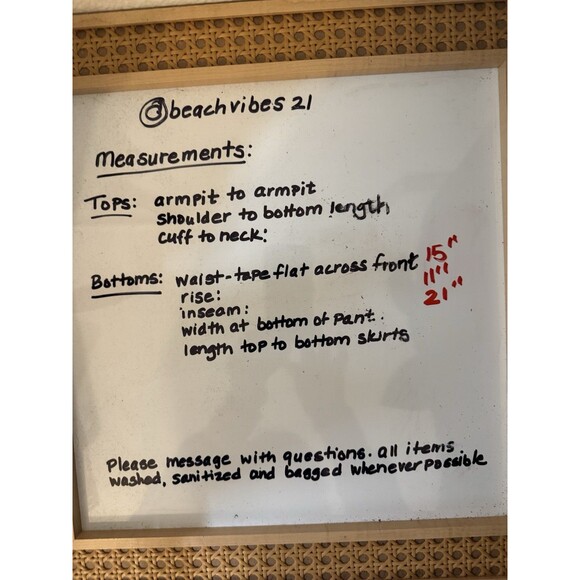 @beachvibes 21
Measurements:
Tops: armpit to armpit
shoulder to bottom length
cuff to neck:
Bottoms: waist-tape flat across front 15"
rise: 11"
inseam: 21"
width at bottom of pant:
length top to bottom skirts
Please message with questions. all items
washed, sanitized and bagged whenever possible